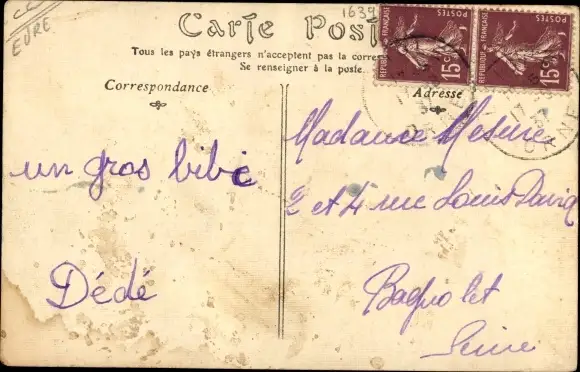 CC
EURE
1639
Carte Post
Tous les pays étrangers n'acceptent pas la corres
Se renseigner à la poste.
REPUBLIQUE FRANÇAISE
POSTES
15c
REPUBLIQUE FRANÇAISE
POSTES
15c
Correspondance
Adresse
un gros bibi
Dédé
Madame Mesure
2 et 4 rue Louis David
Bagnolet
Seine